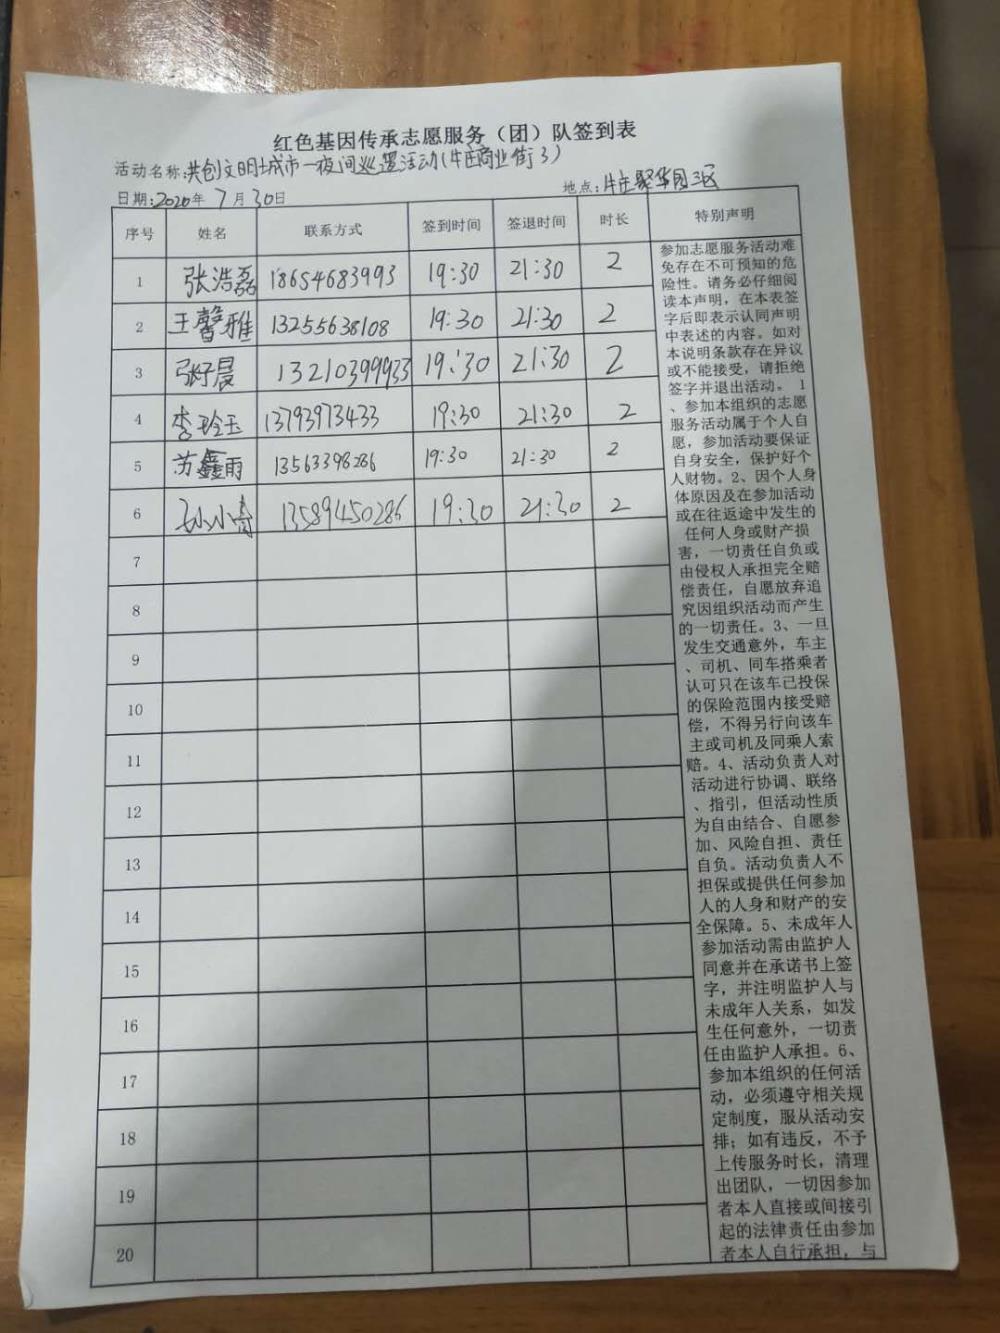 红色基因传承志愿服务（团）队签到表
活动名称:共创文明城市一夜间巡逻活动(牛庄商业街3)
日期:2020年 7月30日 地点:牛庄聚华园三区
序号 姓名 联系方式 签到时间 签退时间 时长 特别声明
1 张浩磊 18654683993 19:30 21:30 2
2 王馨雅 13255638108 19:30 21:30 2
3 张好晨 13210399933 19:30 21:30 2
4 李玲玉 13793973433 19:30 21:30 2
5 苏鑫雨 13563398286 19:30 21:30 2
6 孙小青 13589450286 19:30 21:30 2
7
8
9
10
11
12
13
14
15
16
17
18
19
20
参加志愿服务活动难
免存在不可预知的危
险性。请务必仔细阅
读本声明，在本表签
字后即表示认同声明
中表述的内容。如对
本说明条款存在异议
或不能接受，请拒绝
签字并退出活动。 1
、参加本组织的志愿
服务活动属于个人自
愿，参加活动要保证
自身安全，保护好个
人财物。2、因个人身
体原因及在参加活动
或在往返途中发生的
任何人身或财产损
害，一切责任自负或
由侵权人承担完全赔
偿责任，自愿放弃追
究因组织活动而产生
的一切责任。3、一旦
发生交通意外，车主
、司机、同车搭乘者
认可只在该车已投保
的保险范围内接受赔
偿，不得另行向该车
主或司机及同乘人索
赔。4、活动负责人对
活动进行协调、联络
、指引，但活动性质
为自由结合、自愿参
加、风险自担、责任
自负。活动负责人不
担保或提供任何参加
人的人身和财产的安
全保障。5、未成年人
参加活动需由监护人
同意并在承诺书上签
字，并注明监护人与
未成年人关系，如发
生任何意外，一切责
任由监护人承担。6、
参加本组织的任何活
动，必须遵守相关规
定制度，服从活动安
排；如有违反，不予
上传服务时长，清理
出团队，一切因参加
者本人直接或间接引
起的法律责任由参加
者本人自行承担，与